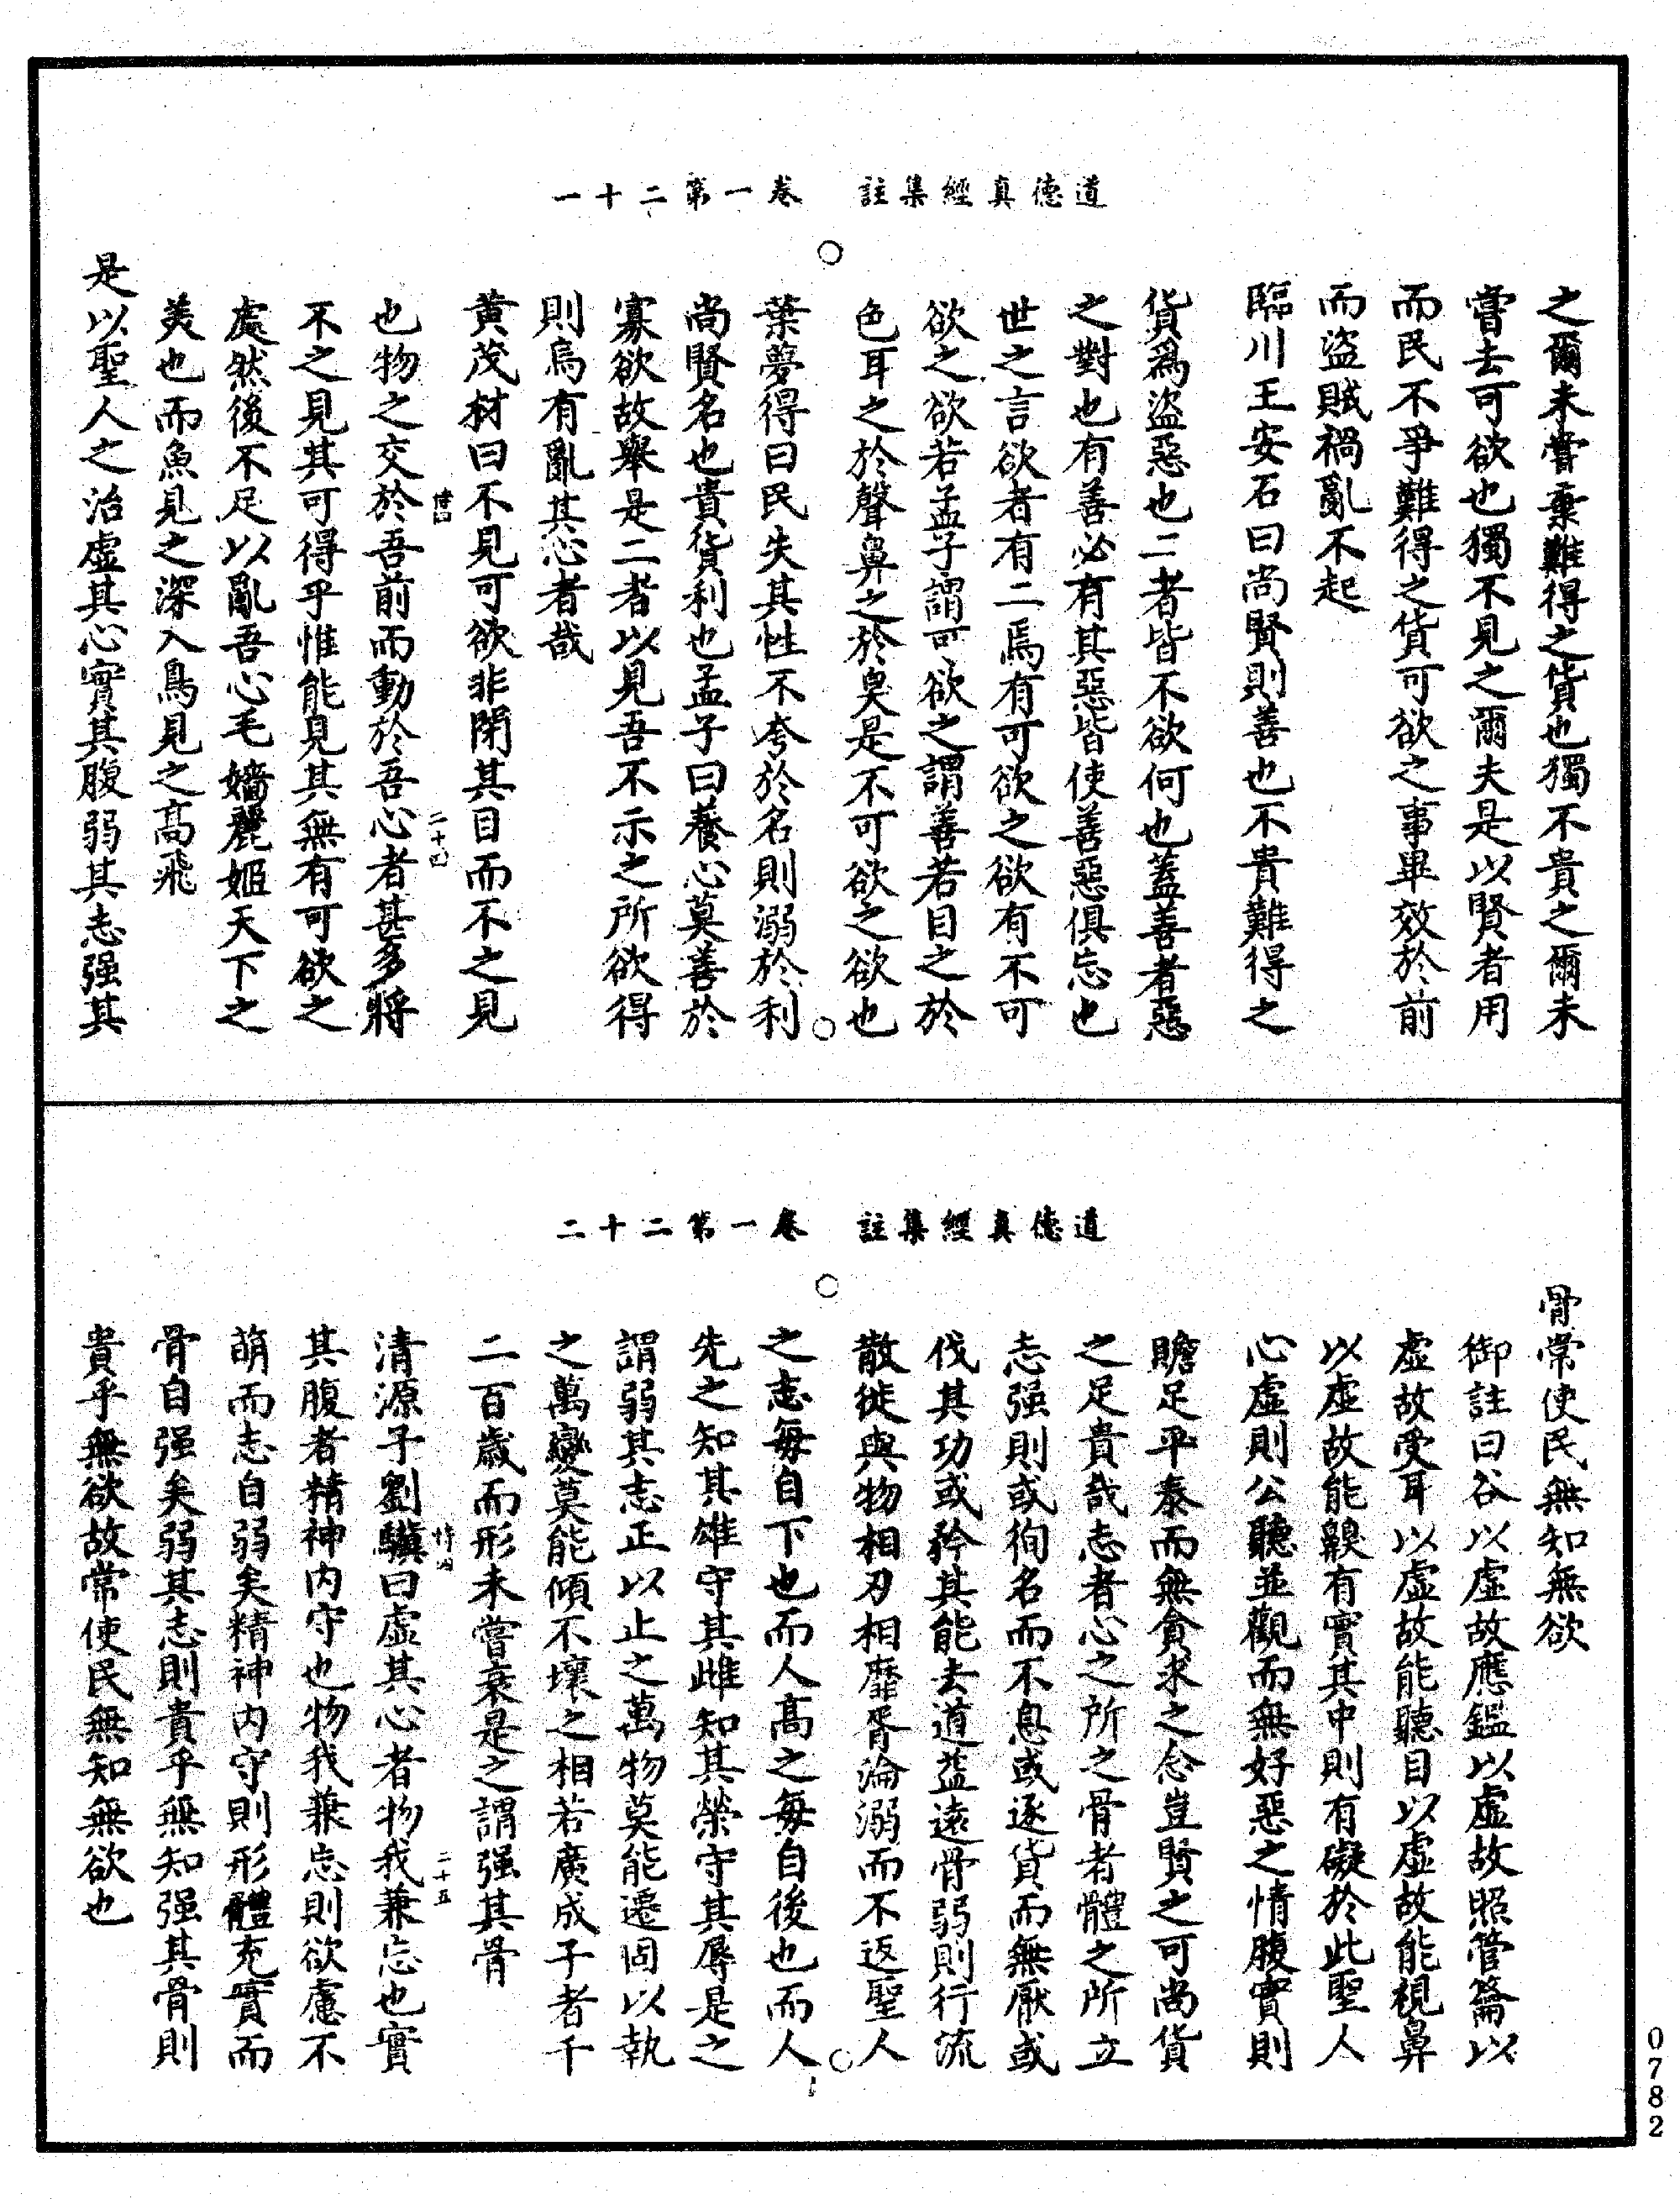 道德真經集註　卷一第二十一
之爾未嘗棄難得之貨也獨不貴之爾未
嘗去可欲也獨不見之爾夫是以賢者用
而民不爭難得之貨可欲之事畢效於前
而盜賊禍亂不起
臨川王安石曰尚賢則善也不貴難得之
貨爲盜惡也二者皆不欲何也蓋善者惡
之對也有善必有其惡皆使善惡俱忘也
世之言欲者有二焉有可欲之欲有不可
欲之欲若孟子謂可欲之謂善若目之於
色耳之於聲鼻之於臭是不可欲之欲也
葉夢得曰民失其性不夸於名則溺於利
尚賢名也貴貨利也孟子曰養心莫善於
寡欲故舉是二者以見吾不示之所欲得
則烏有亂其心者哉
黄茂材曰不見可欲非閉其目而不之見
二十四
也物之交於吾前而動於吾心者甚多將
不之見其可得乎惟能見其無有可欲之
處然後不足以亂吾心毛嬙麗姬天下之
美也而魚見之深入鳥見之高飛
是以聖人之治虚其心實其腹弱其志强其
道德真經集註　卷一第二十二
骨常使民無知無欲
御註曰谷以虚故應鑑以虚故照管籥以
虚故受耳以虚故能聽目以虚故能視鼻
以虚故能齅有實其中則有礙於此聖人
心虚則公聽並觀而無好惡之情腹實則
贍足平泰而無貪求之念豈賢之可尚貨
之足貴哉志者心之所之骨者體之所立
志强則或徇名而不息或逐貨而無厭或
伐其功或矜其能去道益遠骨弱則行流
散徙與物相刃相靡胥淪溺而不返聖人
之志每自下也而人高之每自後也而人
先之知其雄守其雌知其榮守其辱是之
謂弱其志正以止之萬物莫能遷固以執
之萬變莫能傾不壞之相若廣成子者千
二百歲而形未嘗衰是之謂强其骨
二十五
清源子劉驥曰虚其心者物我兼忘也實
其腹者精神内守也物我兼忘則欲慮不
萌而志自弱矣精神内守則形體充實而
骨自强矣弱其志則貴乎無知强其骨則
貴乎無欲故常使民無知無欲也
0782